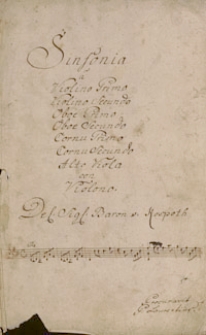 Sinfonia
a
Violino Primo
Violino Secundo
Oboe Primo
Oboe Secundo
Cornu Primo
Cornu Secundo
Alto Viola
con
Violono.
Del Sigl. Baron v.